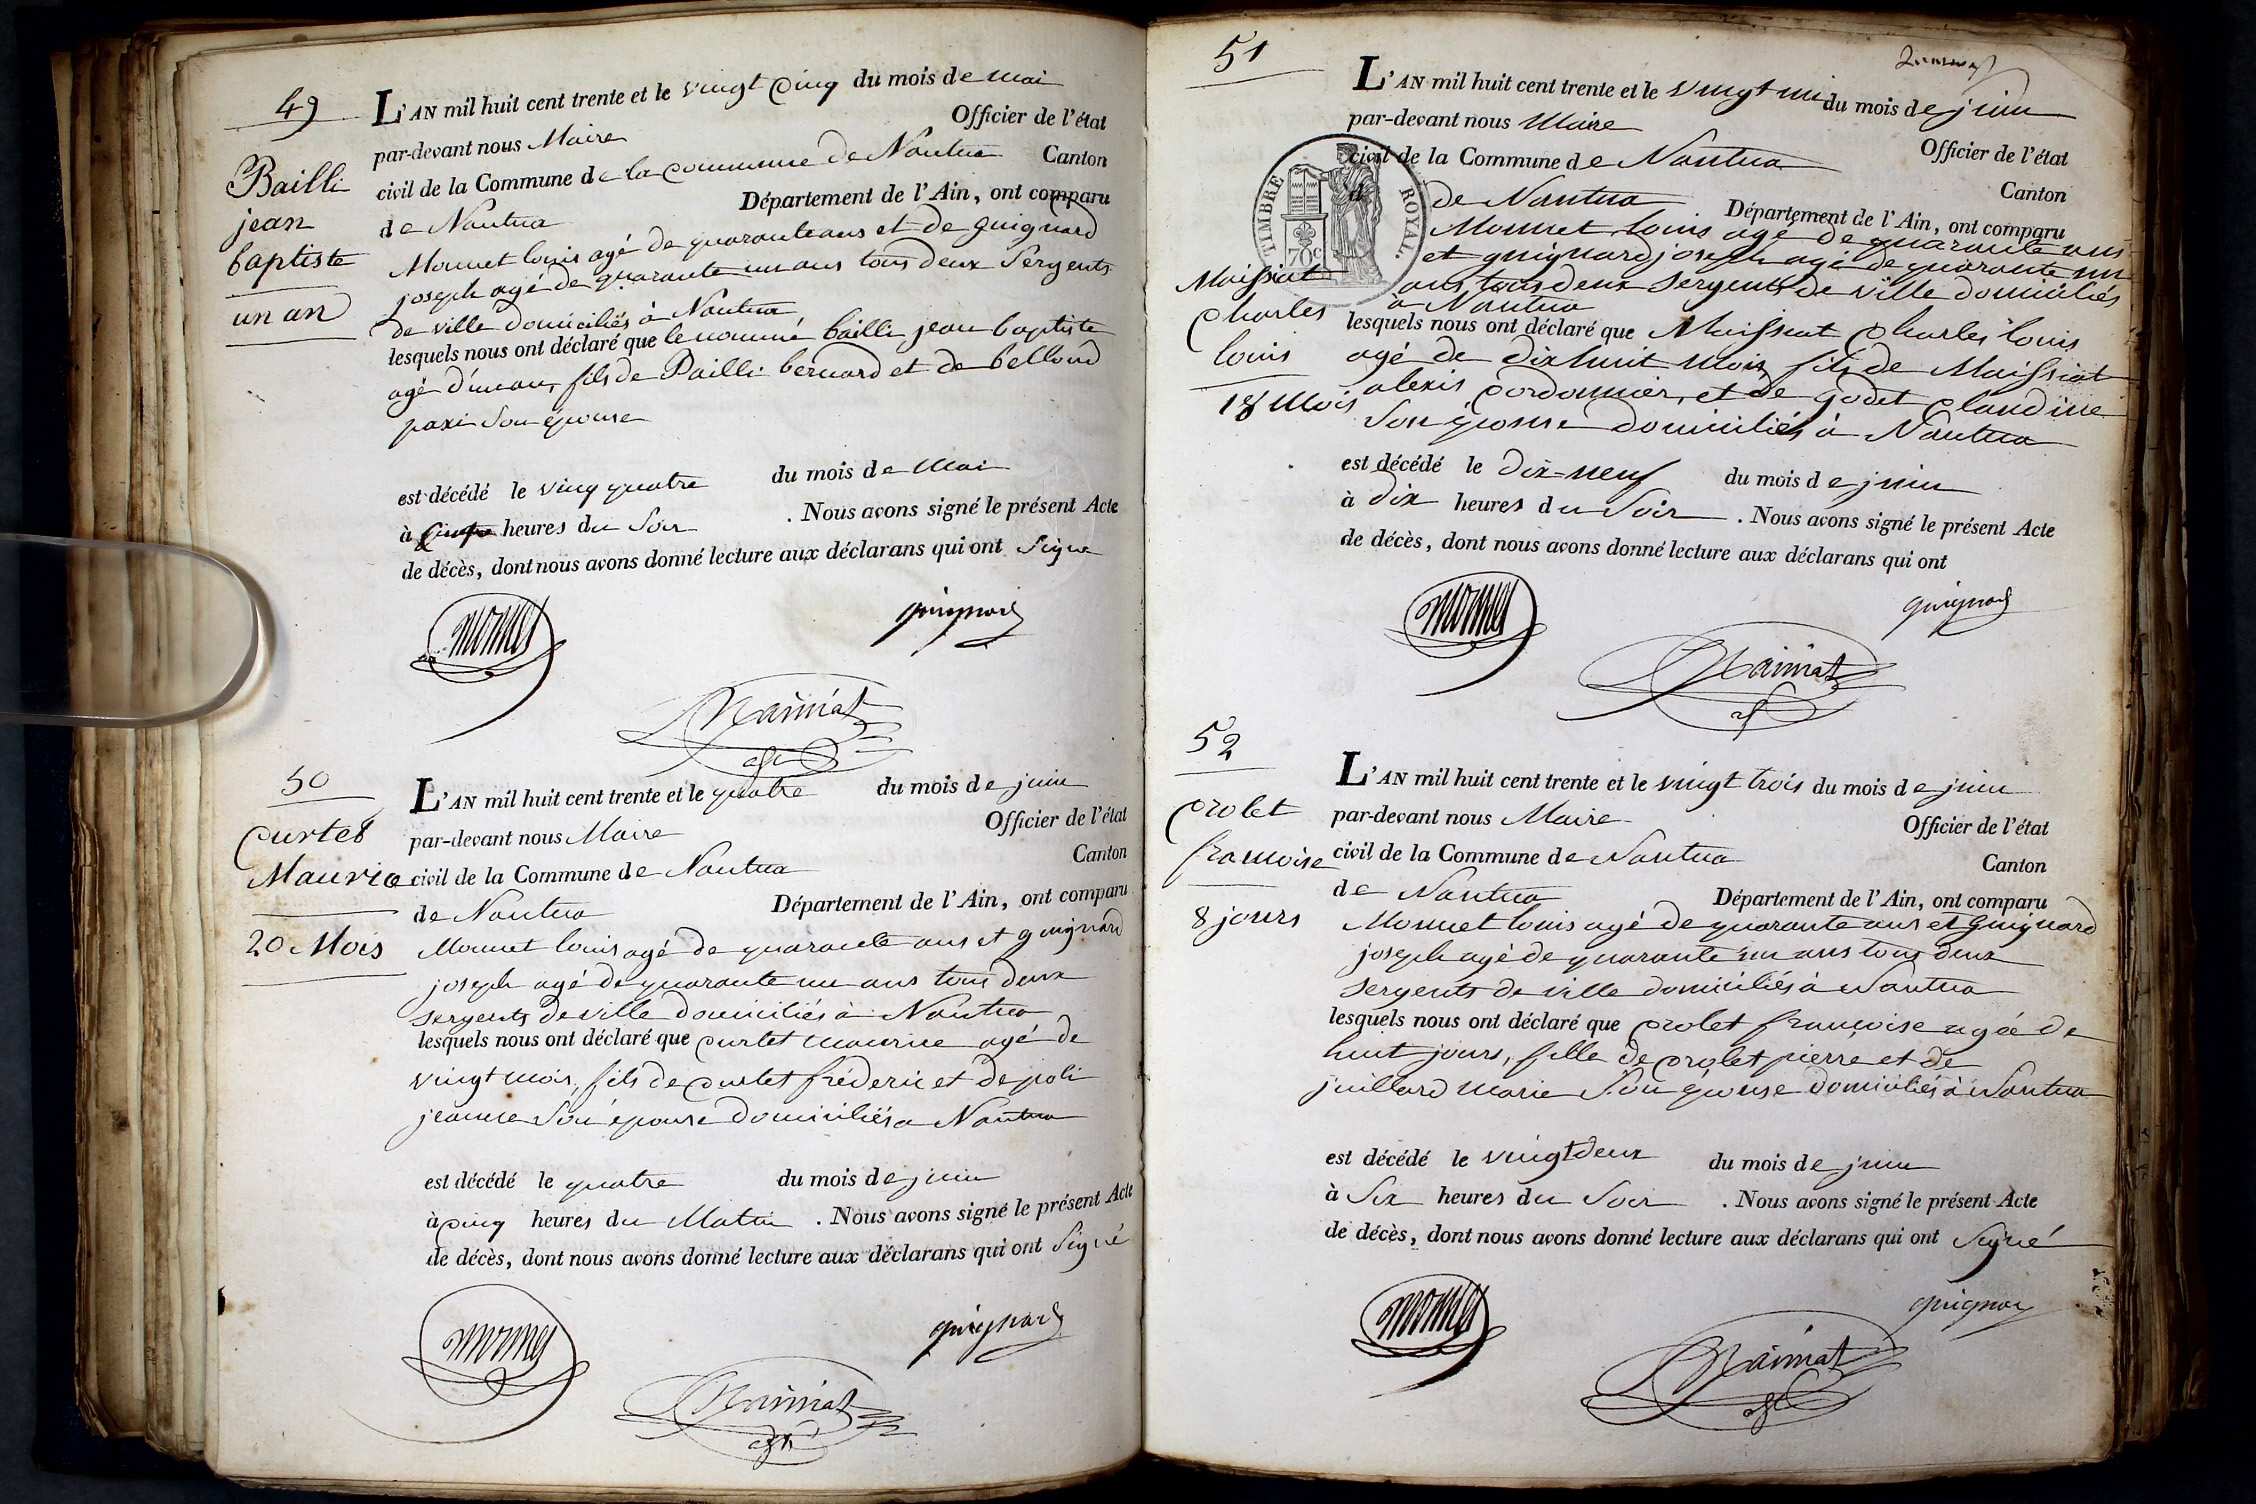 49
Bailli
jean
baptiste
un an
L'AN mil huit cent trente et le vingt cinq du mois de mai
par-devant nous Maire Officier de l'état
civil de la Commune de la commune de Nantua Canton
de Nantua Département de l'Ain, ont comparu
Monnet louis agé de quarante ans et de guignard
joseph agé de quarante un ans tous deux Sergents
de ville domiciliés à Nantua
lesquels nous ont déclaré que le nommé bailli jean baptiste
agé d'un an, fils de Bailli bernard et de belloud
son épouse
est décédé le vingt quatre du mois de Mai
à heures du Soir . Nous avons signé le présent Acte
de décès, dont nous avons donné lecture aux déclarans qui ont Signé
monnet
guignard
50
Curtet
Maurice
20 Mois
L'AN mil huit cent trente et le quatre du mois de juin
par-devant nous Maire Officier de l'état
civil de la Commune de Nantua Canton
de Nantua Département de l'Ain, ont comparu
Monnet louis agé de quarante ans et guignard
joseph agé de quarante un ans tous deux
sergents de ville domiciliés à Nantua
lesquels nous ont déclaré que curtet maurice agé de
vingt mois, fils de curtet fréderic et de joli
jeanne son épouse domiciliés a Nantua
est décédé le quatre du mois de juin
à cinq heures du Matin . Nous avons signé le présent Acte
de décès, dont nous avons donné lecture aux déclarans qui ont Signé
monnet
guignard
51
Maissiat
Charles
louis
18 Mois
TIMBRE ROYAL.
70c
L'AN mil huit cent trente et le vingt un du mois de juin
par-devant nous Maire Officier de l'état
civil de la Commune de Nantua Canton
d de Nantua Département de l'Ain, ont comparu
Monnet louis agé de quarante ans
et guignard joseph agé de quarante un
ans, tous deux sergents de ville domiciliés
à Nantua
lesquels nous ont déclaré que Maissiat Charles louis
agé de dix huit mois, fils de Maissiat
alexis, cordonnier, et de godet claudine
son épouse domiciliés à Nantua
est décédé le dix-neuf du mois de juin
à dix heures du Soir . Nous avons signé le présent Acte
de décès, dont nous avons donné lecture aux déclarans qui ont
monnet
guignard
52
Crolet
francoise
8 jours
L'AN mil huit cent trente et le vingt trois du mois de juin
par-devant nous Maire Officier de l'état
civil de la Commune de Nantua Canton
de Nantua Département de l'Ain, ont comparu
Monnet louis agé de quarante ans et Guignard
joseph agé de quarante un ans tous deux
sergents de ville domiciliés à Nantua
lesquels nous ont déclaré que crolet françoise agée de
huit jours, fille de crolet pierre et de
juillard marie son épouse domiciliés à Nantua
est décédé le vingt deux du mois de juin
à Six heures du Soir . Nous avons signé le présent Acte
de décès, dont nous avons donné lecture aux déclarans qui ont Signé
monnet
guignard